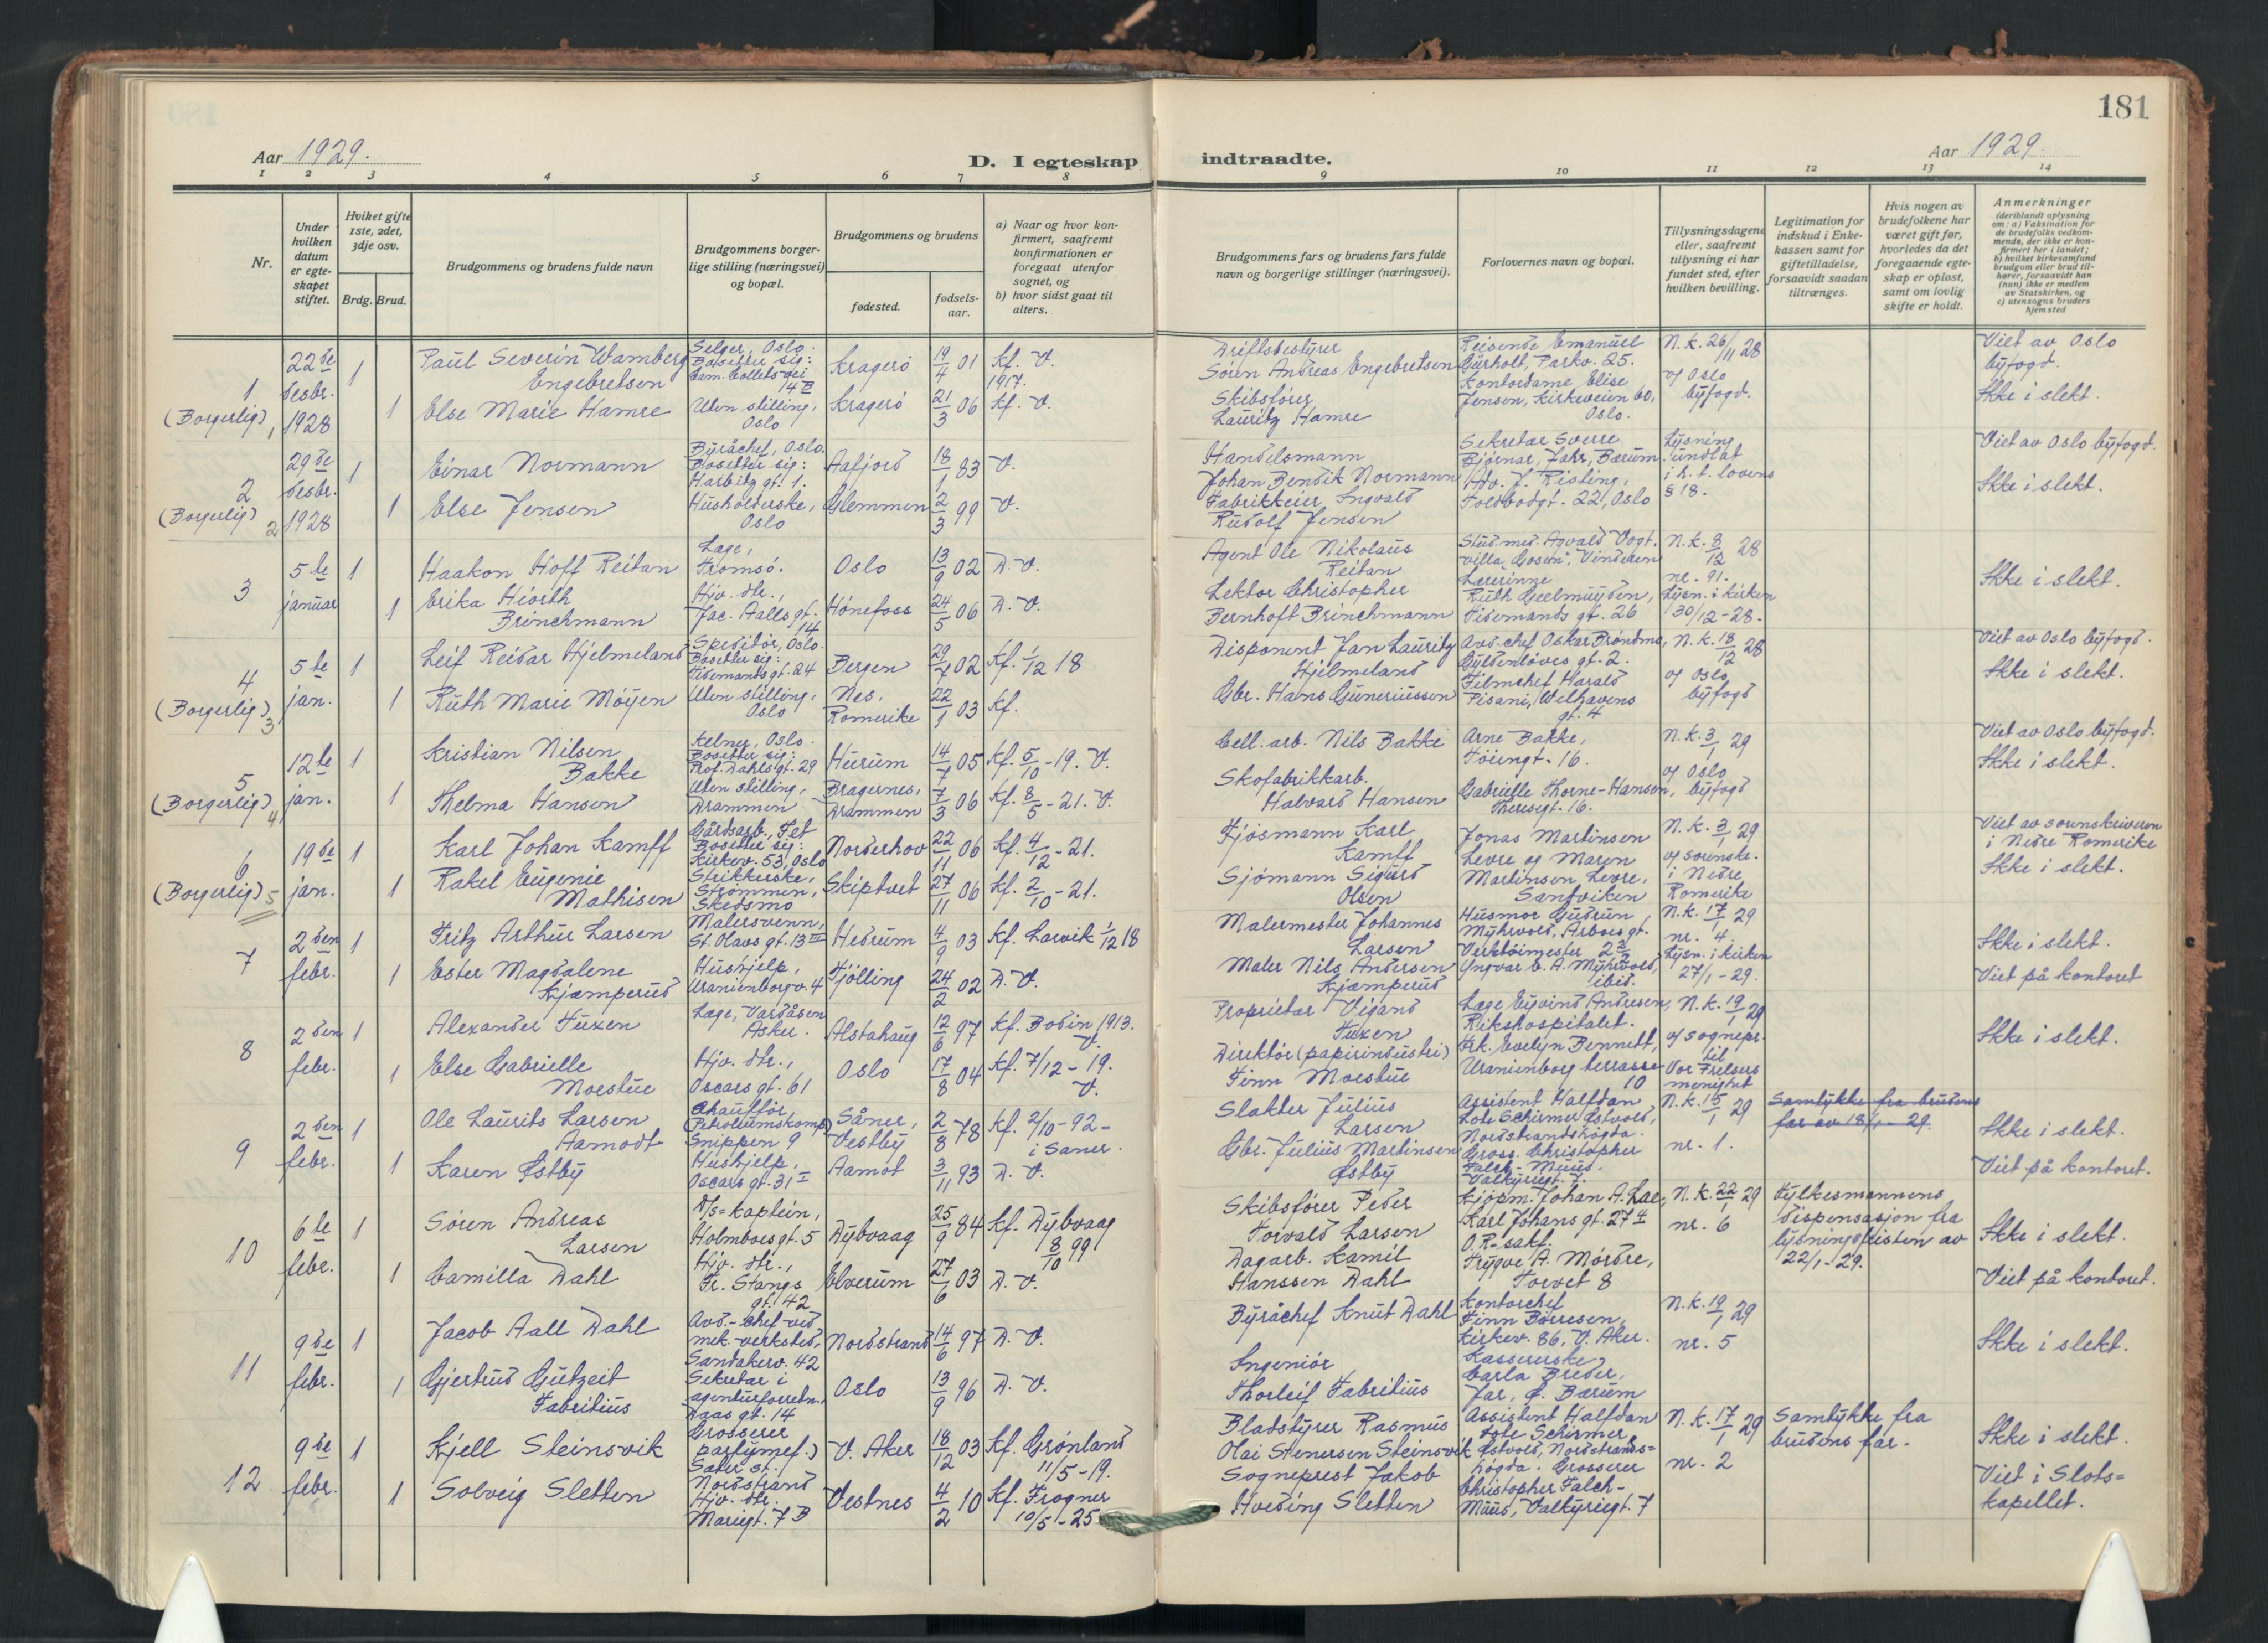 181
Aar 1929.
D. I egteskap indtraadte.
Aar 1929.
1 2 3 4 5 6 7 8 9 10 11 12 13 14
Nr.
Under hvilken datum er egteskapet stiftet.
Hviket gifte 1ste, 2det, 3dje osv.
Brdg. Brud.
Brudgommens og brudens fulde navn
Brudgommens borgerlige stilling (næringsvei) og bopæl.
Brudgommens og brudens
fødested.
fødselsaar.
a) Naar og hvor konfirmert, saafremt konfirmationen er foregaat utenfor sognet, og
b) hvor sidst gaat til alters.
Brudgommens fars og brudens fars fulde navn og borgerlige stillinger (næringsvei).
Forlovernes navn og bopæl.
Tillysningsdagene eller, saafremt tillysning ei har fundet sted, efter hvilken bevilling.
Legitimation for indskud i Enkekassen samt for giftetilladelse, forsaavidt saadan tiltrænges.
Hvis nogen av brudefolkene har været gift før, hvorledes da det foregaaende egteskap er opløst, samt om lovlig skifte er holdt.
Anmerkninger
(deriblandt oplysning om: a) Vaksination for de brudefolks vedkommende, der ikke er konfirmert her i landet; b) hvilket kirkesamfund brudgom eller brud tilhører, forsaavidt han (hun) ikke er medlem av Statskirken, og c) utensogns bruders hjemsted
1 (Borgerlig) 1
22de desbr. 1928
1 Paul Severin Wamberg Engebretsen
Selger, Oslo. Bosetter sig: Cam. Colletts vei 14 II
Kragerö 19/4 01 Kf. V. 1917.
1 Else Marie Hamre
Uten stilling, Oslo
Kragerö 21/3 06 Kf. V.
Driftsbestyrer Sören Andreas Engebretsen
Skibsförer Lauritz Hamre
Reisende Emanuel Gürholt, Parkv. 25.
Kontordame Elise Jensen, Kirkeveien 60, Oslo.
N.k. 26/11 28 of Oslo byfogd.
Viet av Oslo byfogd.
Ikke i slekt.
2 (Borgerlig) 2
29de desbr. 1928
1 Einar Normann
Byråchef, Oslo. Bosetter sig: Harbitz gt. 1.
Aafjord 18/1 83 V.
1 Else Jensen
Husholderske, Oslo
Glemmen 2/3 99 V.
Handelsmann Johan Bendik Normann
Fabrikkeier Ingvald Rudolf Jensen
Sekretær Sverre Bjørnar, Jahr, Bærum.
Adv. J. Risting, Toldbodgt. 22, Oslo
Lysning undlat i h. t. lovens § 18.
Viet av Oslo byfogd.
Ikke i slekt.
3
5te januar
1 Haakon Hoff Reitan
Læge, Tromsö.
Oslo 13/9 02 D. V.
1 Erika Hiorth Brinchmann
Hjv. dtr., Jac. Aalls gt. 14
Hönefoss 24/5 06 D. V.
Agent Ole Nikolaus Reitan
Lektor Christopher Bernhoft Brinchmann
Stud. med. Agvald Vogt, villa "Gosen", Vinderen
Lærerinne Ruth Geelmuyden, Tidemands gt. 26
N.k. 8/12 28 nr. 91. Lysn. i kirken 30/12-28.
Ikke i slekt.
4 (Borgerlig) 3
5te jan.
1 Leif Reidar Hjelmeland
Speditör, Oslo. Bosetter sig: Tidemands gt. 24
Bergen 29/7 02 Kf. 1/12 18
1 Ruth Marie Möyen
Uten stilling, Oslo
Nes, Romerike 22/1 03 Kf.
Disponent Jan Lauritz Hjelmeland
Gbr. Hans Guneriussen
Avd. chef Oskar Bröndmo, Gyldenlöves gt. 2.
Filmchef Harald Pisani, Welhavens gt. 4
N.k. 18/12 28 of Oslo byfogd
Viet av Oslo byfogd.
Ikke i slekt.
5 (Borgerlig) 4
12te jan.
1 Kristian Nilsen Bakke
Kelner, Oslo. Bosetter sig: Prof. Dahls gt. 29
Hurum 14/7 05 Kf. 5/10-19. V.
1 Thelma Hansen
Uten stilling, Drammen
Bragernes, Drammen 7/3 06 Kf. 8/5-21. V.
Cell. arb. Nils Bakke
Skofabrikkarb. Halvard Hansen
Arne Bakke, Töiengt. 16.
Gabrielle Thorne-Hansen, Theresgt. 16.
N.k. 3/1 29 of Oslo byfogd
Viet av Oslo byfogd.
Ikke i slekt.
6 (Borgerlig) 5
19de jan.
1 Karl Johan Kamff
Gårdsarb., Fet Bosetter sig: Kirkev. 53, Oslo
Norderhov 22/11 06 Kf. 4/12-21.
1 Rakel Eugenie Mathisen
Strikkerske, Strömmen, Skedsmo
Skiptvet 27/11 06 Kf. 2/10-21.
Fjösmann Karl Kamff
Sjömann Sigurd Olsen
Jonas Martinsen Levre og Maren Martinsen Levre, Sandviken
N.k. 3/1 29 of sorenskr. i Nedre Romerike
Viet av sorenskriveren i Nedre Romerike
Ikke i slekt.
7
2den febr.
1 Fritz Arthur Larsen
Malersvenn, St. Olavs gt. 13 III
Hedrum 4/9 03 Kf. Larvik 1/12 18
1 Ester Magdalene Kjæmperud
Hushjelp, Uranienborgv. 4
Tjölling 24/2 02 D. V.
Malermester Johannes Larsen
Maler Nils Andersen Kjæmperud
Husmor Gudrun Myhrvold, Arboes gt.
Verktöimester Yngvar C. A. Myhrvold, ibid.
N.k. 17/1 29 nr. 4. Lysn. i kirken 27/1-29.
Ikke i slekt.
Viet på kontoret
8
2den febr.
1 Alexander Tuxen
Læge, Vardåsen Asker.
Alstahaug 12/6 97 Kf. Bodin 1913. V.
1 Else Gabrielle Moestue
Hjv. dtr., Oscars gt. 61
Oslo 17/8 04 Kf. 7/12-19. V.
Proprietær Vigand Tuxen
Direktör (papirindustri) Finn Moestue
Læge Eyvind Andresen, Rikshospitalet.
Frk. Evelyn Bennett, Uranienborg terrasse 10
N.k. 19/1 29 of sognepr. til Vor Frelsers menighet
Ikke i slekt.
9
2den febr.
1 Ole Laurits Larsen Aamodt
Chaufför (Petroleumskomp.) Snippen 9
Såner, Vestby 2/8 78 Kf. 2/10-92- i Saner.
1 Karen Østby
Hushjelp, Oscars gt. 31 I
Aamot 3/11 93 D. V.
Slakter Julius Larsen
Gbr. Julius Martinsen Østby
Assistent Halfdan Lote Schirmer Østvold, Nordstrandshögda.
Gross. Christopher Falch-Muus, Valkyriegt. 7.
N.k. 15/1 29 nr. 1.
Samtykke fra brudens far av 18/1-29.
Ikke i slekt.
Viet på kontoret.
10
6te febr.
1 Sören Andreas Larsen
D/s=kaptein, Holmboes gt. 5
Dybvaag 25/9 84 Kf. Dybvaag 8/10 99
1 Camilla Dahl
Hjv. dtr., Fr. Stangs gt. 42
Elverum 27/6 03 D. V.
Skibsförer Peder Torvald Larsen
Dagarb. Kamil Hanssen Dahl
Kjöpm. Johan A. Lae, Karl Johans gt. 27 II
O.R-sakf. Trygve A. Mördre, Torvet 8
N.k. 22/1 29 nr. 6
Fylkesmannens dispensasjon fra lysningsfristen av 22/1-29.
Ikke i slekt.
Viet på kontoret.
11
9de febr.
1 Jacob Aall Dahl
Avd.-chef ved mek. verksted, Sandakerv. 42
Nordstrand 14/6 97 D. V.
1 Gjertrud Gutzeit Fabritius
Sekretær i agenturforretn., Daas gt. 14
Oslo 13/9 96 D. V.
Byråchef Knut Dahl
Ingeniör Thorleif Fabritius
Kontorchef Finn Börresen, Kirkev. 86, V. Aker.
Kassererske Carla Breder, Jar, Ø. Bærum
N.k. 19/1 29 nr. 5
Ikke i slekt.
12
9de febr.
1 Kjell Steinsvik
Grosserer (parfymef.) Sæter st. Nordstrand
V. Aker 18/12 03 Kf. Grønland 11/5-19.
1 Solveig Sletten
Hjv. dtr. Mariegt. 7 B
Vestnes 4/2 10 Kf. Frogner 10/5-25
Bladstyrer Rasmus Olai Stenersen Steinsvik
Sogneprest Jakob Hveding Sletten
Assistent Halfdan Lote Schirmer Østvold, Nordstrands=högda.
Grosserer Christopher Falch-Muus, Valkyriegt. 7
N.k. 17/1 29 nr. 2
Samtykke fra brudens far.
Ikke i slekt.
Viet i Slots=kapellet.